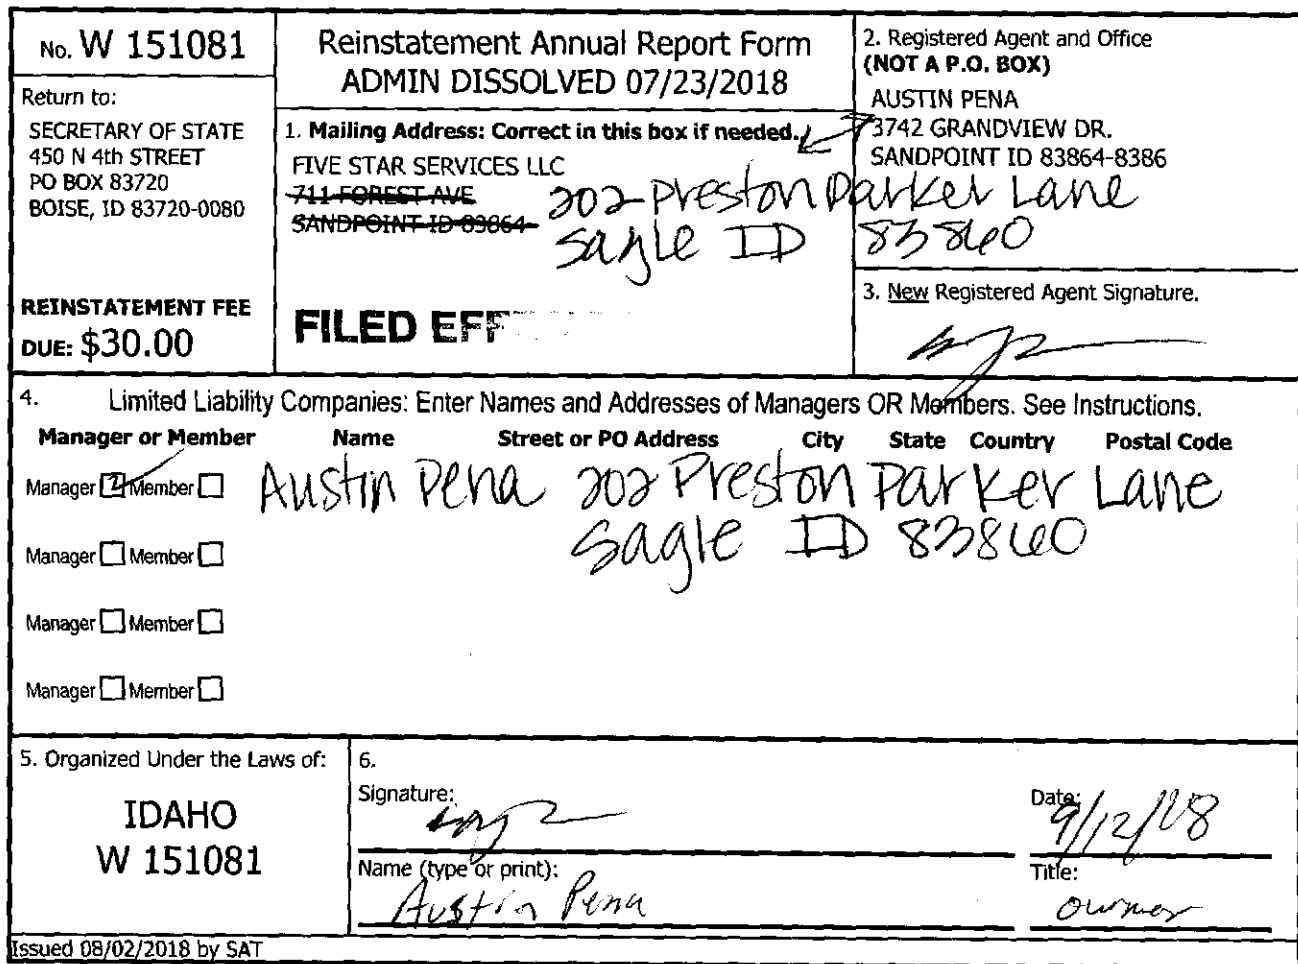 No. W 151081
Return to:
SECRETARY OF STATE
450 N 4th STREET
PO BOX 83720
BOISE, ID 83720-0080
REINSTATEMENT FEE
DUE: $30.00
Reinstatement Annual Report Form
ADMIN DISSOLVED 07/23/2018
1. Mailing Address: Correct in this box if needed.
FIVE STAR SERVICES LLC
711 FOREST AVE
SANDPOINT ID 83864
202 Preston Parker Lane
Sagle ID 83860
FILED EFF
2. Registered Agent and Office
(NOT A P.O. BOX)
AUSTIN PENA
3742 GRANDVIEW DR.
SANDPOINT ID 83864-8386
3. New Registered Agent Signature.
4. Limited Liability Companies: Enter Names and Addresses of Managers OR Members. See Instructions.
Manager or Member Name Street or PO Address City State Country Postal Code
Manager Member Austin Pena 202 Preston Parker Lane
Sagle ID 83860
Manager Member
Manager Member
Manager Member
5. Organized Under the Laws of:
IDAHO
W 151081
6.
Signature:
Date: 9/12/18
Name (type or print):
Austin Pena
Title:
owner
Issued 08/02/2018 by SAT